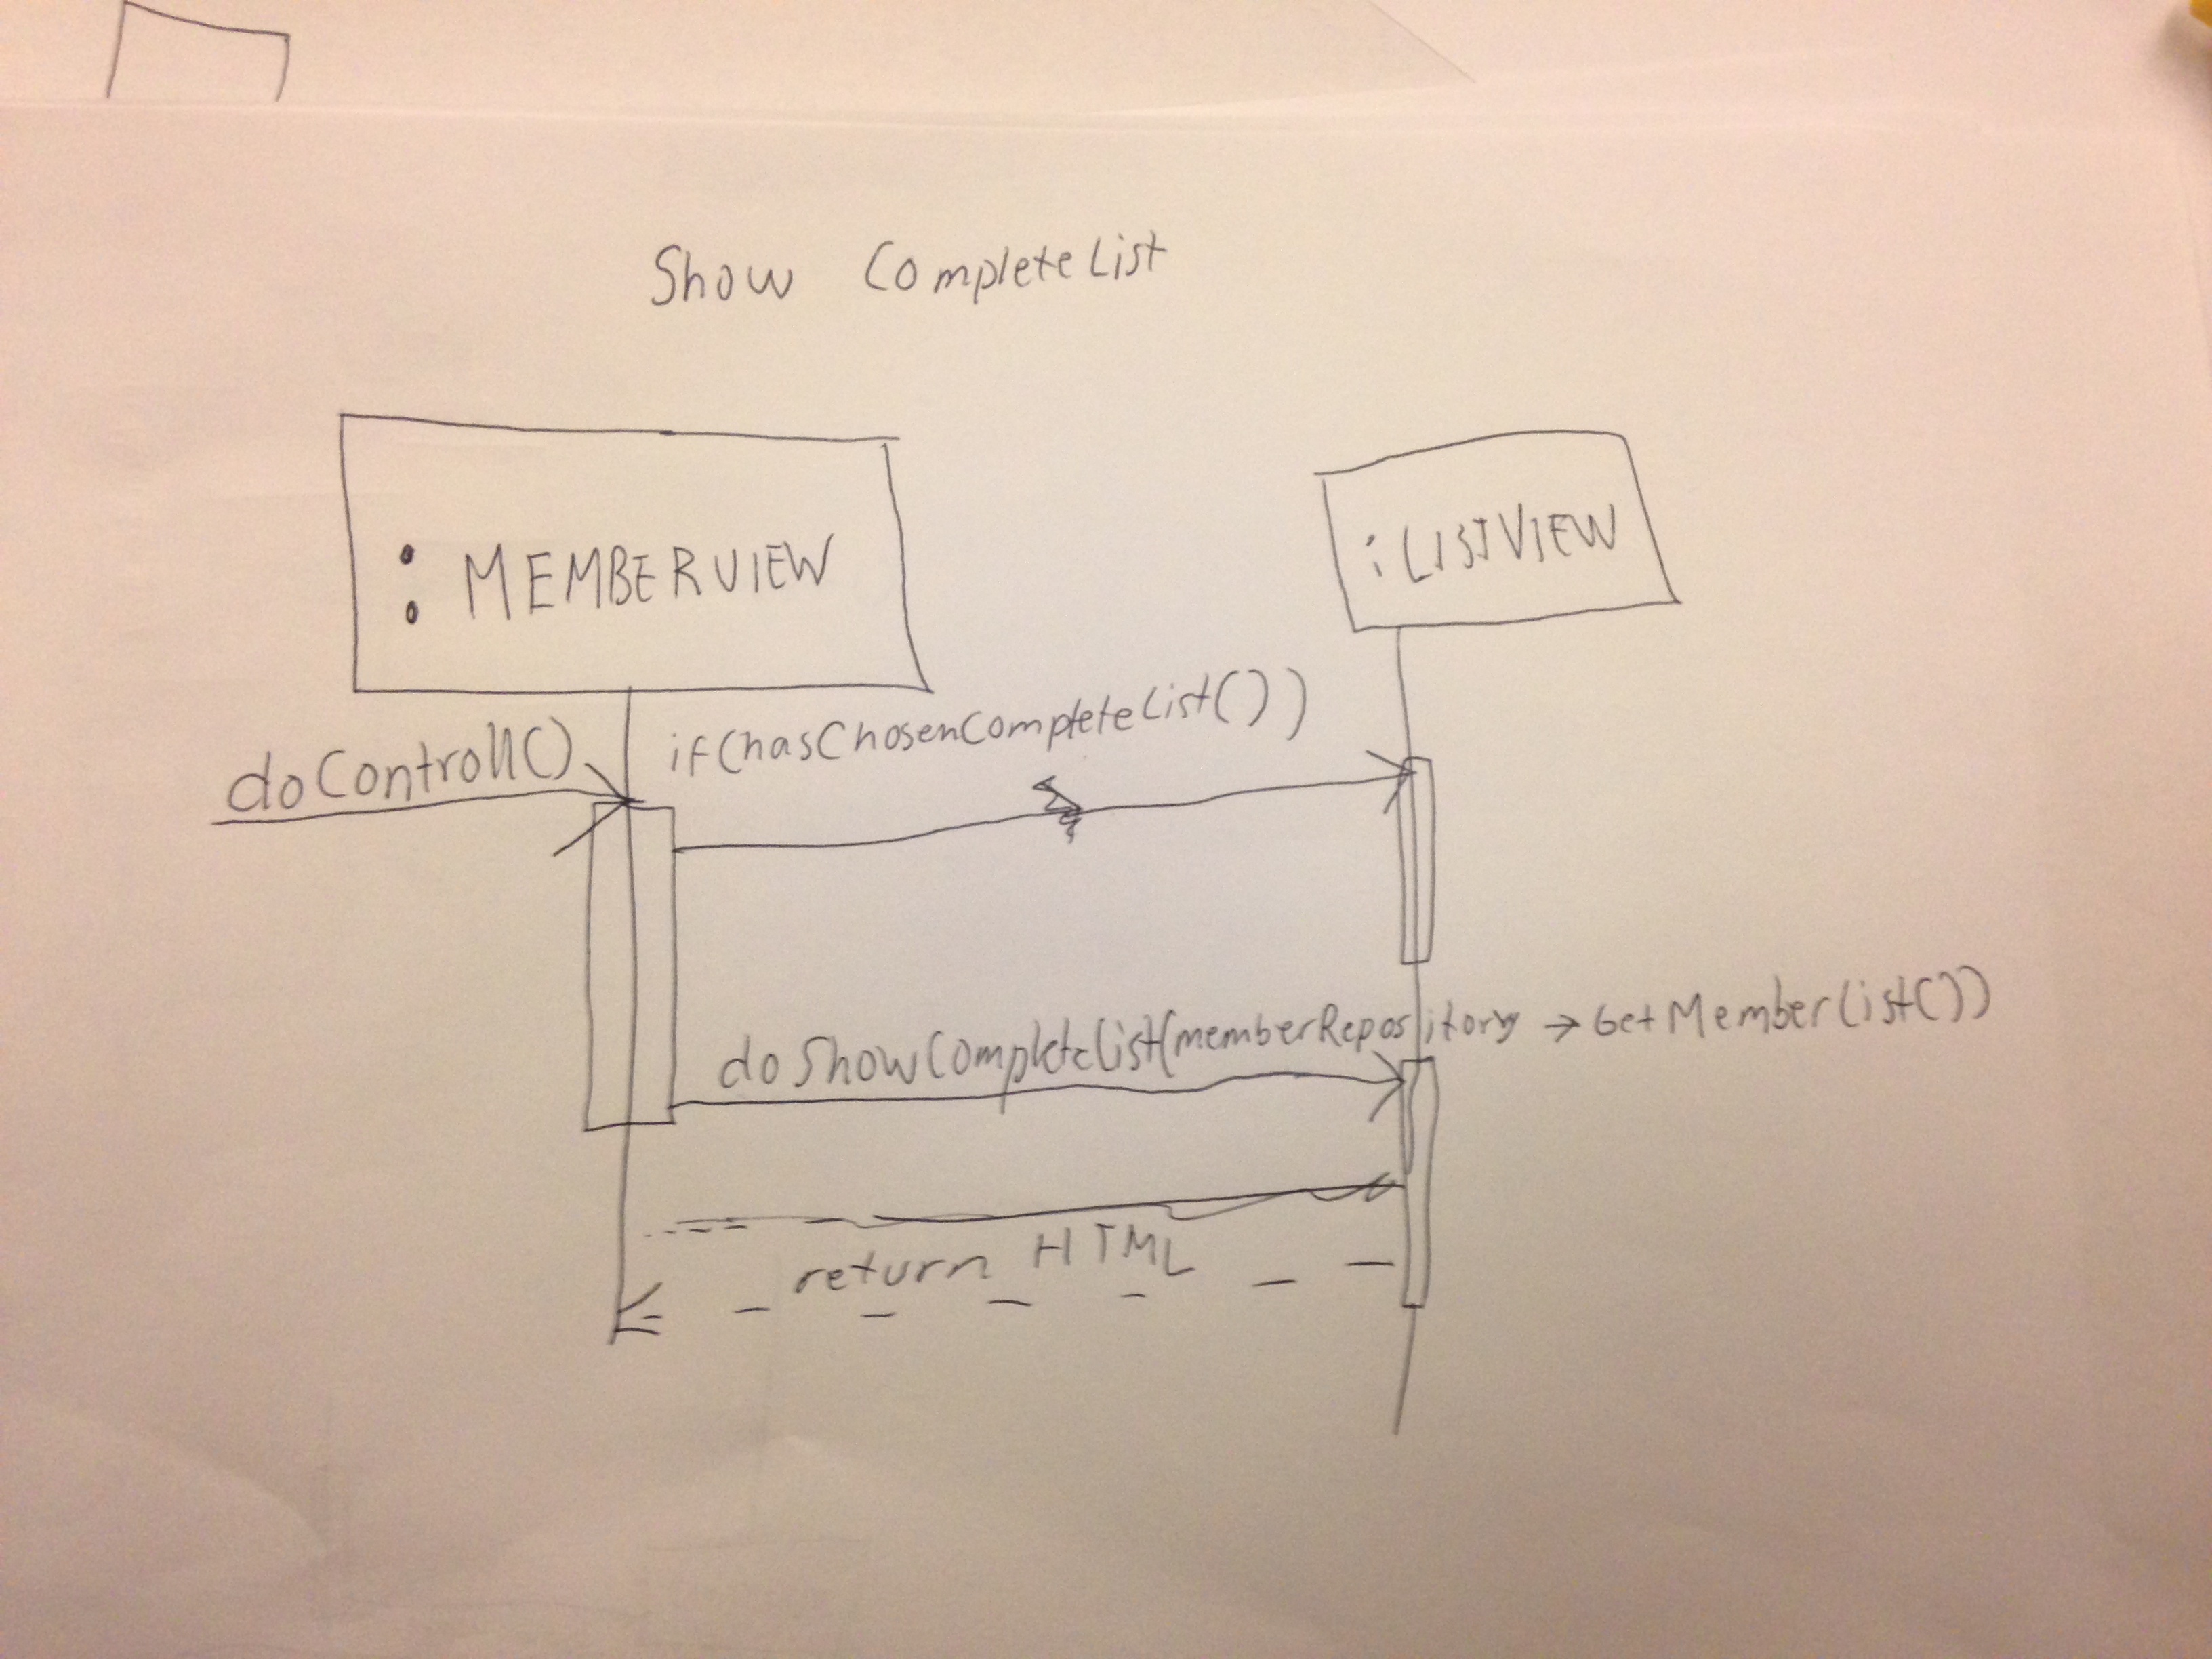 Show CompleteList
: MEMBERVIEW
: LISTVIEW
doControll()
if(hasChosenCompleteList())
doShowCompleteList(memberRepository → GetMemberList())
return HTML